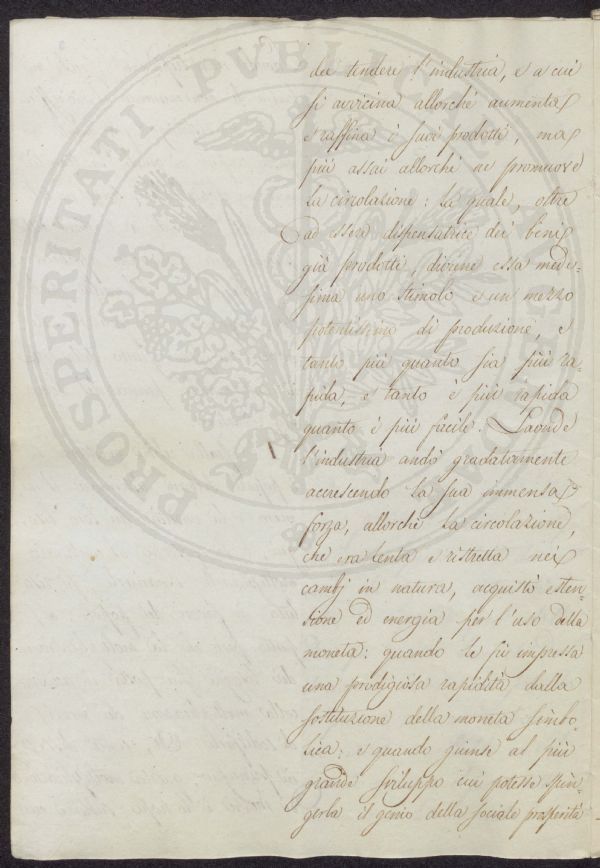 dee tendere l'industria, e a cui
si avvicina allorchè aumenta
e raffina i suoi prodotti, ma
più assai allorchè ne promuove
la circolazione: la quale, oltre
ad essere dispensatrice dei beni
già prodotti, diviene essa mede-
sima uno stimolo e un mezzo
potentissimo di produzione, e
tanto più quanto sia più ra-
pida, e tanto è più rapida
quanto è più facile. Laonde
l'industria andò gradatamente
accrescendo la sua immensa
forza, allorchè la circolazione,
che era lenta e ristretta nei
cambj in natura, acquistò esten-
sione ed energia per l'uso della
moneta: quando le fù impressa
una prodigiosa rapidità dalla
sostituzione della moneta simbo-
lica: e quando giunse al più
grande sviluppo cui potesse spin-
gerla il genio della sociale prosperità
PROSPERITATI PUBLICAE